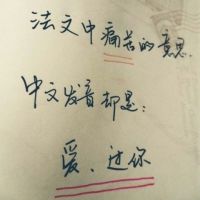 法文中痛苦的意思.
中文发音却是:
爱、过你